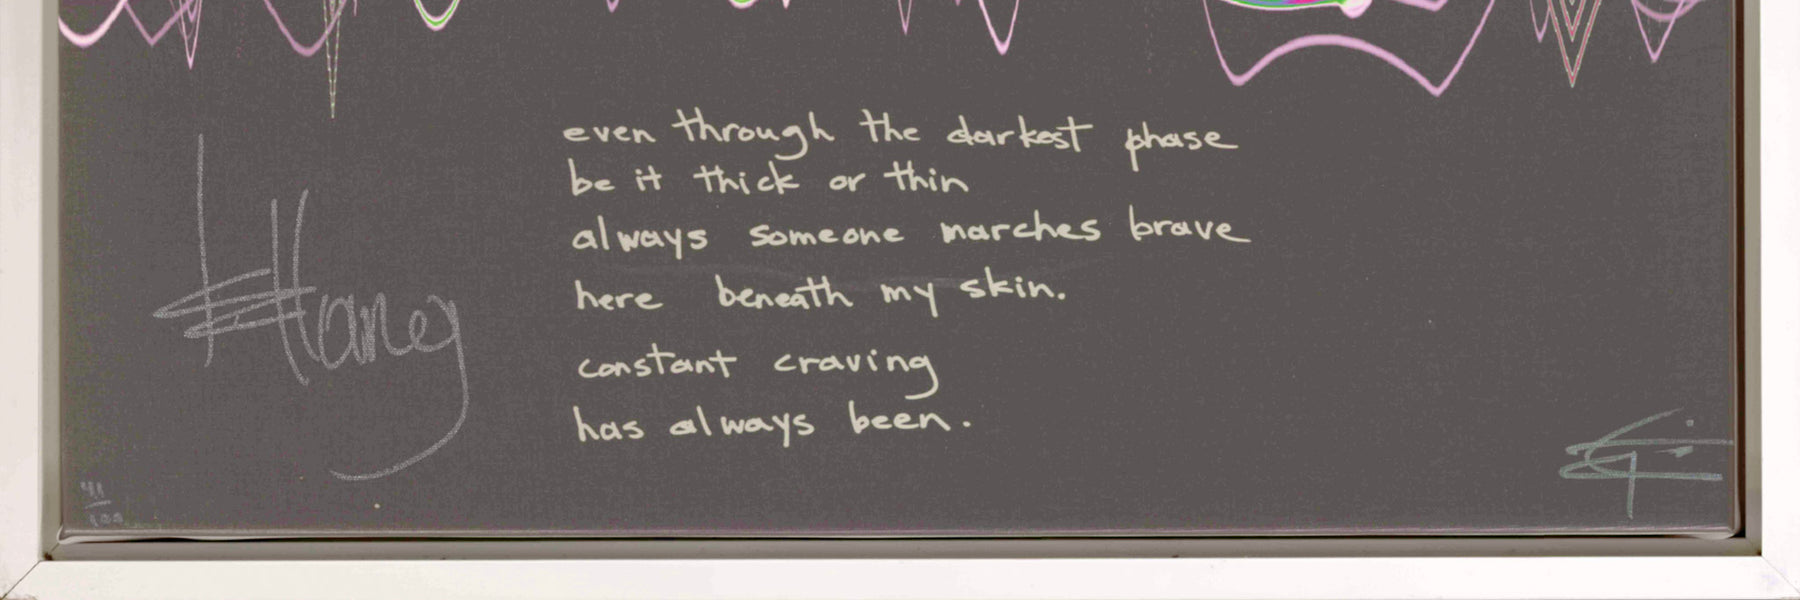 even through the darkest phase
be it thick or thin
always someone marches brave
here beneath my skin.
constant craving
has always been.